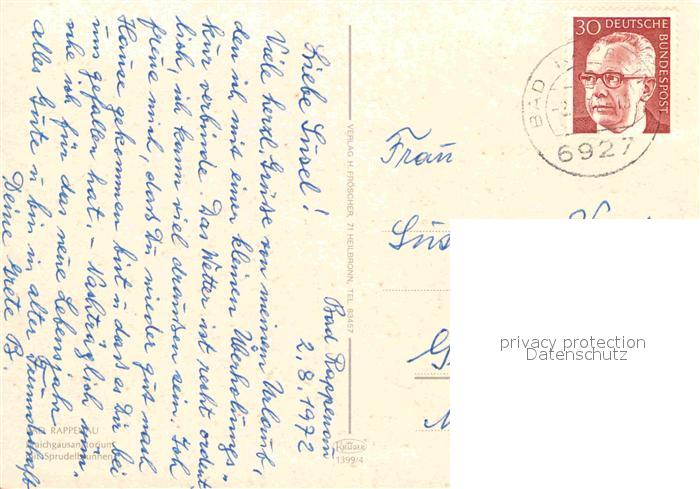 Bad Rappenau,
2.8.1972
Liebe Susel!
Viele herzl. Grüße von meinem Urlaub,
den ich mit einer kleinen Überholungs-
kur verbinde. Das Wetter ist recht ordent-
lich, ich kann viel draußen sein. Ich
freue mich, dass Du wieder gut nach
Hause gekommen bist u. dass es Dir bei
uns gefallen hat. - Nachträglich wün-
sche ich für das neue Lebensjahr
alles Gute u. bin in alter Freundschaft
Deine Grete B.
BAD RAPPENAU
Kraichgausanatorium
mit Sprudelbrunnen
VERLAG H. FRÖSCHER, 71 HEILBRONN, TEL. 83457
KRÜGER
1399/4
30 DEUTSCHE
BUNDESPOST
BAD
6927
Frau
privacy protection
Datenschutz